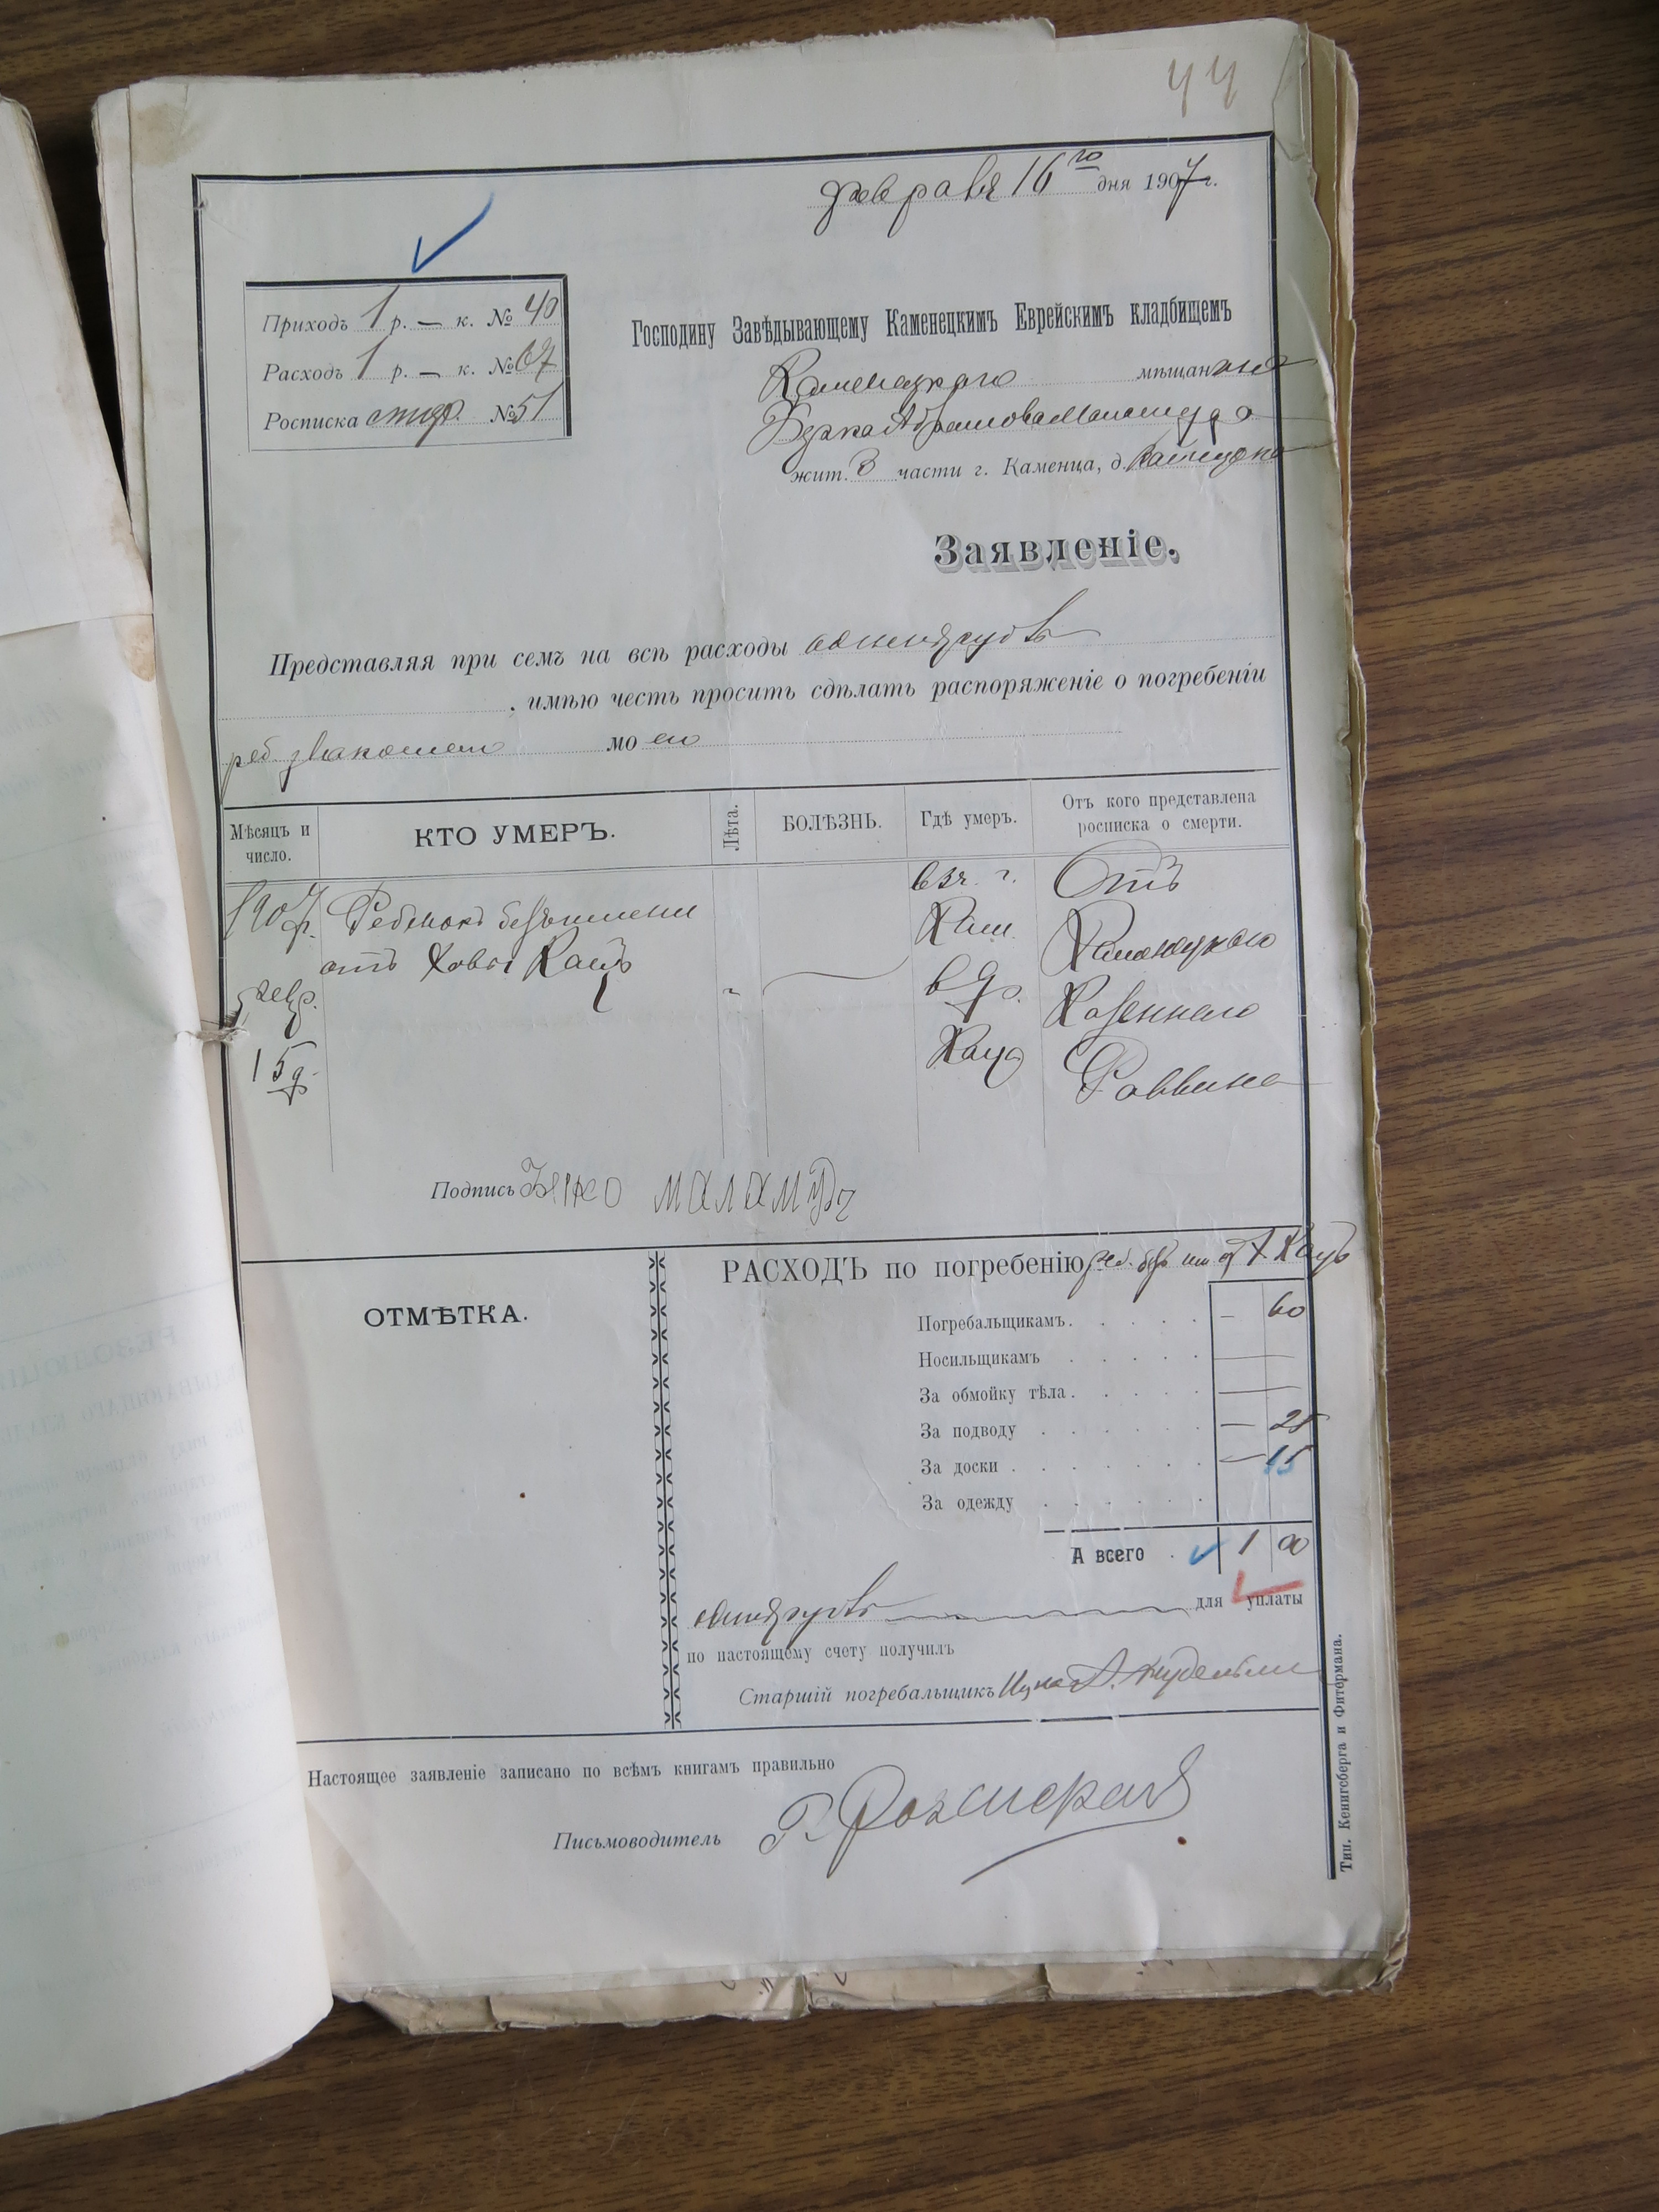 44
февраля 16го дня 1907 г.
Приходъ 1 р. — к. № 40
Расходъ 1 р. — к. № 67
Росписка № 51
Господину Завѣдывающему Каменецкимъ Еврейскимъ кладбищемъ
Каменецкаго мѣщанина
Берка Абрамова Маламуда
жит. 3 части г. Каменца, д.
Заявленіе.
Представляя при семъ на всѣ расходы одинъ рубль
, имѣю честь просить сдѣлать распоряженіе о погребеніи
реб. знакомаго мо его
Мѣсяцъ и число.
КТО УМЕРЪ.
Лѣта.
БОЛѢЗНЬ.
Гдѣ умеръ.
Отъ кого представлена росписка о смерти.
1907 г.
февр.
15 д.
Ребенокъ безъ имени
отъ Ховы Кацъ
в 3 ч. г.
Кам.
в д.
Каца
Отъ
Каменецкаго
Казеннаго
Раввина
Подпись Берко Маламудъ
ОТМѢТКА.
РАСХОДЪ по погребенію реб. безъ им. от Х Кацъ
Погребальщикамъ. — 60
Носильщикамъ —
За обмойку тѣла. —
За подводу — 25
За доски — 15
За одежду
А всего 1 00
одинъ рубль для уплаты
по настоящему счету получилъ
Старшій погребальщикъ
Настоящее заявленіе записано по всѣмъ книгамъ правильно
Письмоводитель
Тип. Кенигсберга и Фитермана.